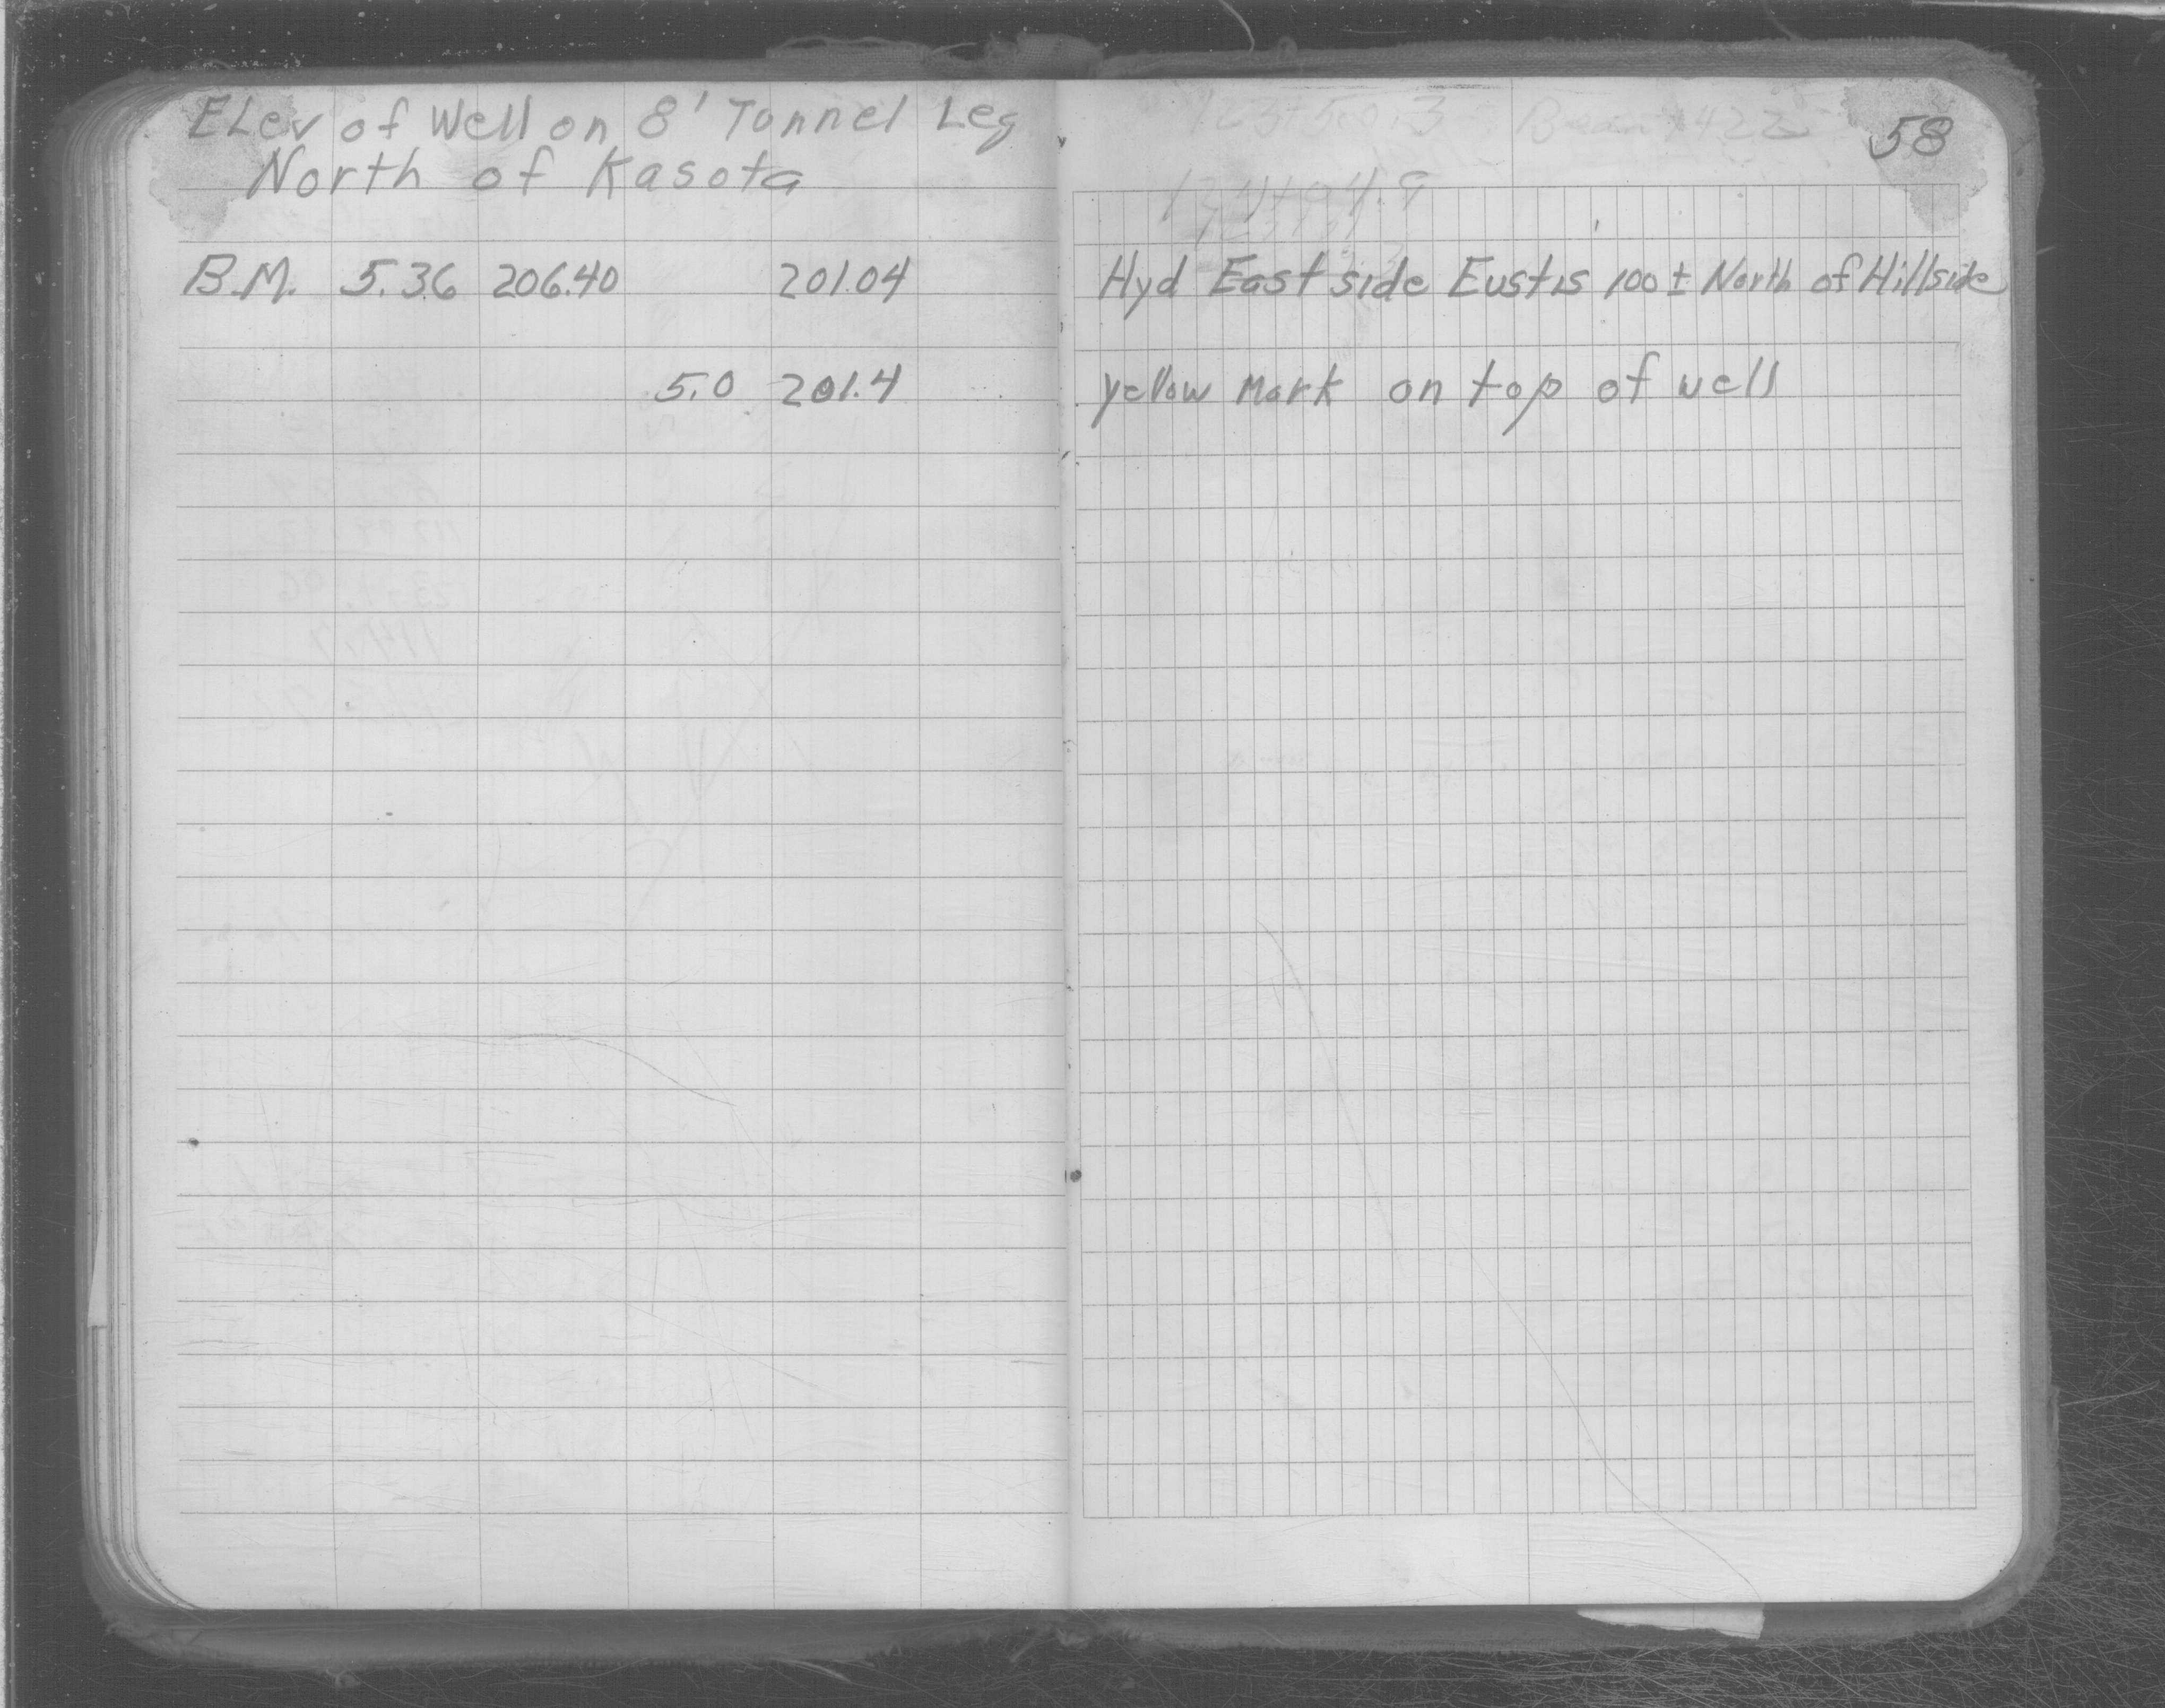 ELev of Well on 8' Tunnel Leg
North of Kasota
58
B.M. 5.36 206.40 201.04 Hyd East side Eustis 100 ± North of Hillside
5.0 201.4 yellow Mark on top of well